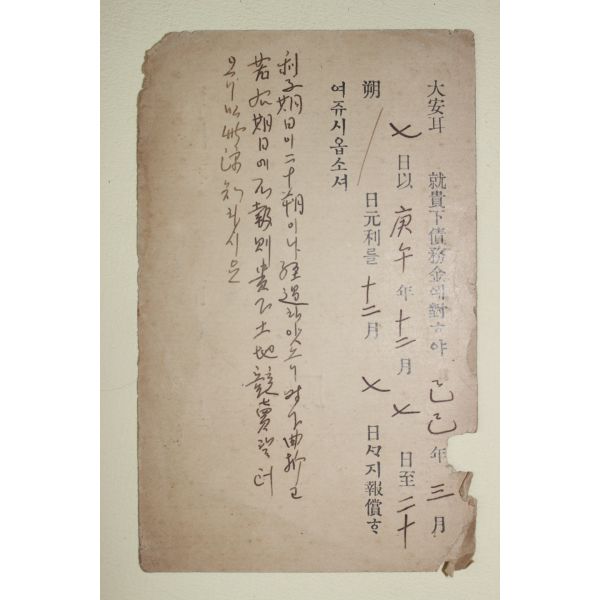 大安耳 就貴下債務金에對ᄒᆞ야 己巳年三月
七日以庚午年十二月七日至二十
朔 日元利를十二月七日ᄭᆞ지報償ᄒᆞ
여쥬시옵소셔
利子期日이二十朔이나經過하얏스니時下曲折로
若右期日에不報則貴下土地競賣할터
이니以此諒知하시오